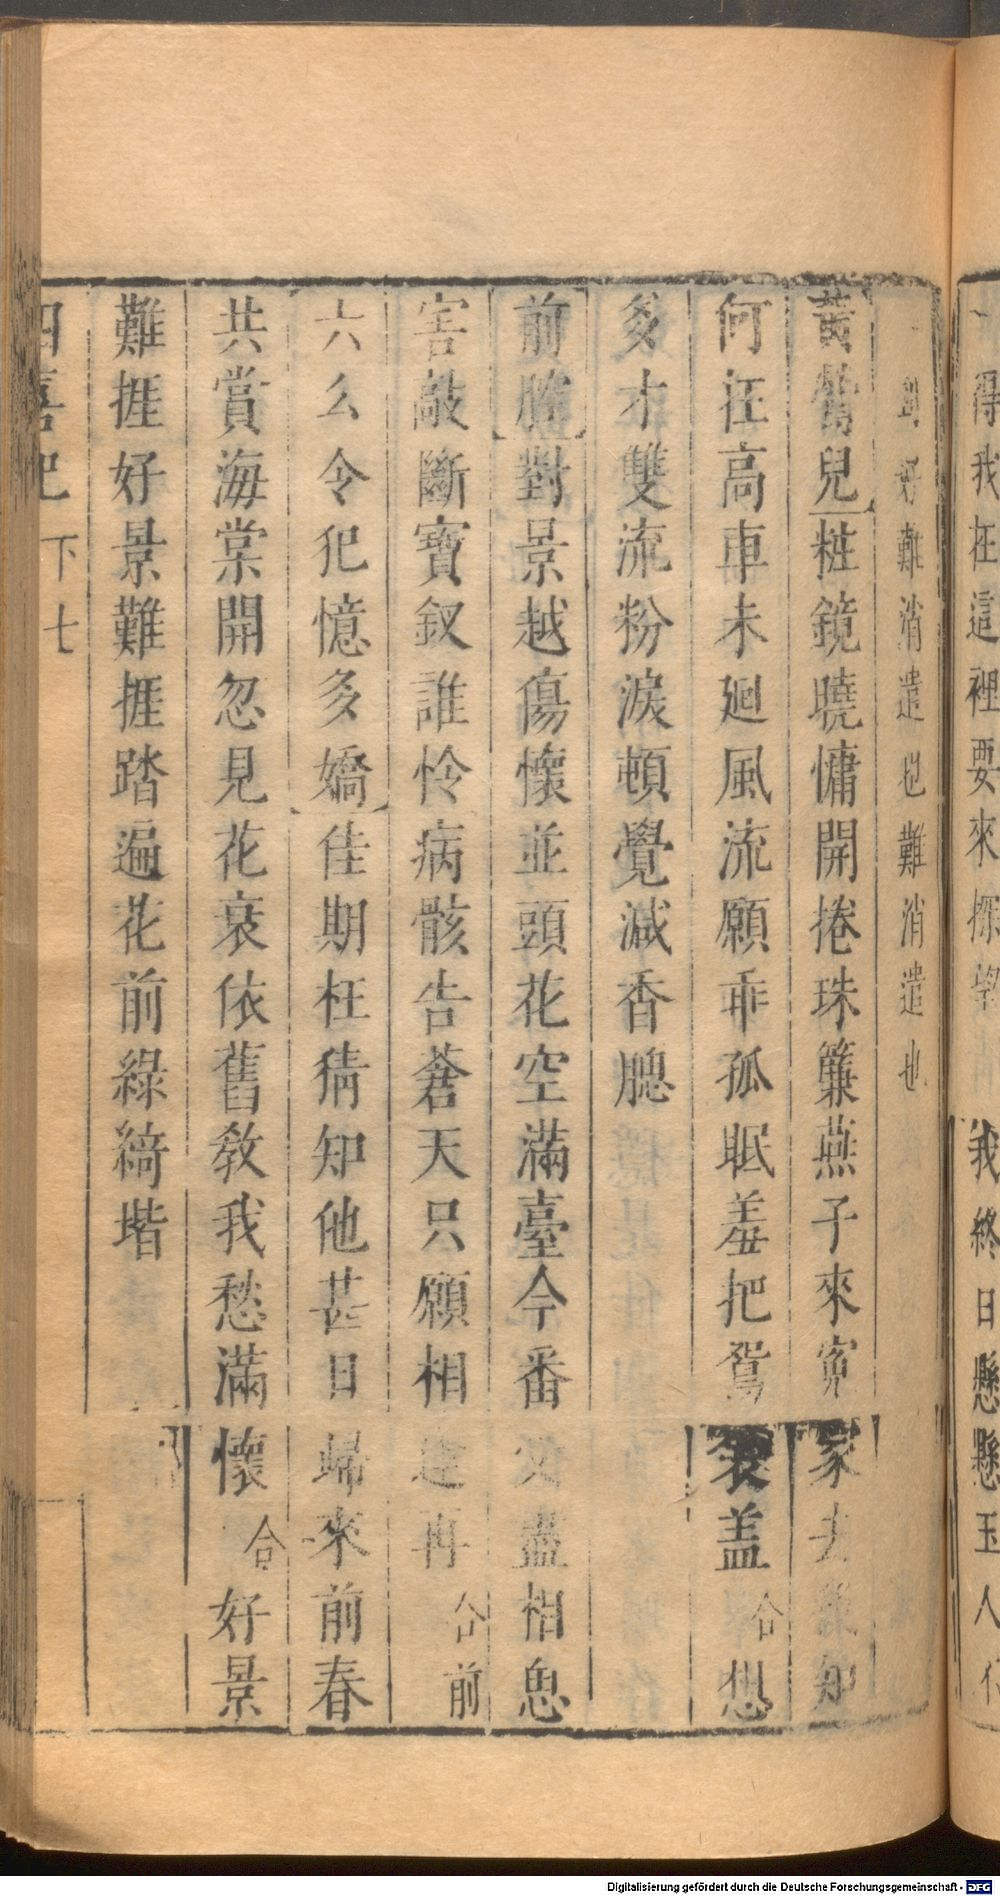 得我在這裡要來探望 我終日懸懸玉人
好難消遣也難消遣也
黃鶯兒粧鏡曉慵開捲珠簾燕子來寃家去
何在高車未廻風流願乖孤眠羞把鴛衾盖 合 想
多才雙流粉淚頓覺減香腮
前腔對景越傷懷並頭花空滿臺今番 盡相思
害敲斷寶釵誰怜病骸告蒼天只願相逢再 合前
六么令犯憶多嬌佳期枉猜知他甚日歸來前春
共賞海棠開忽見花衰依舊教我愁滿懷 合 好景
難捱好景難捱踏遍花前綠綺堦
四喜記 下 七
Digitalisierung gefördert durch die Deutsche Forschungsgemeinschaft - DFG